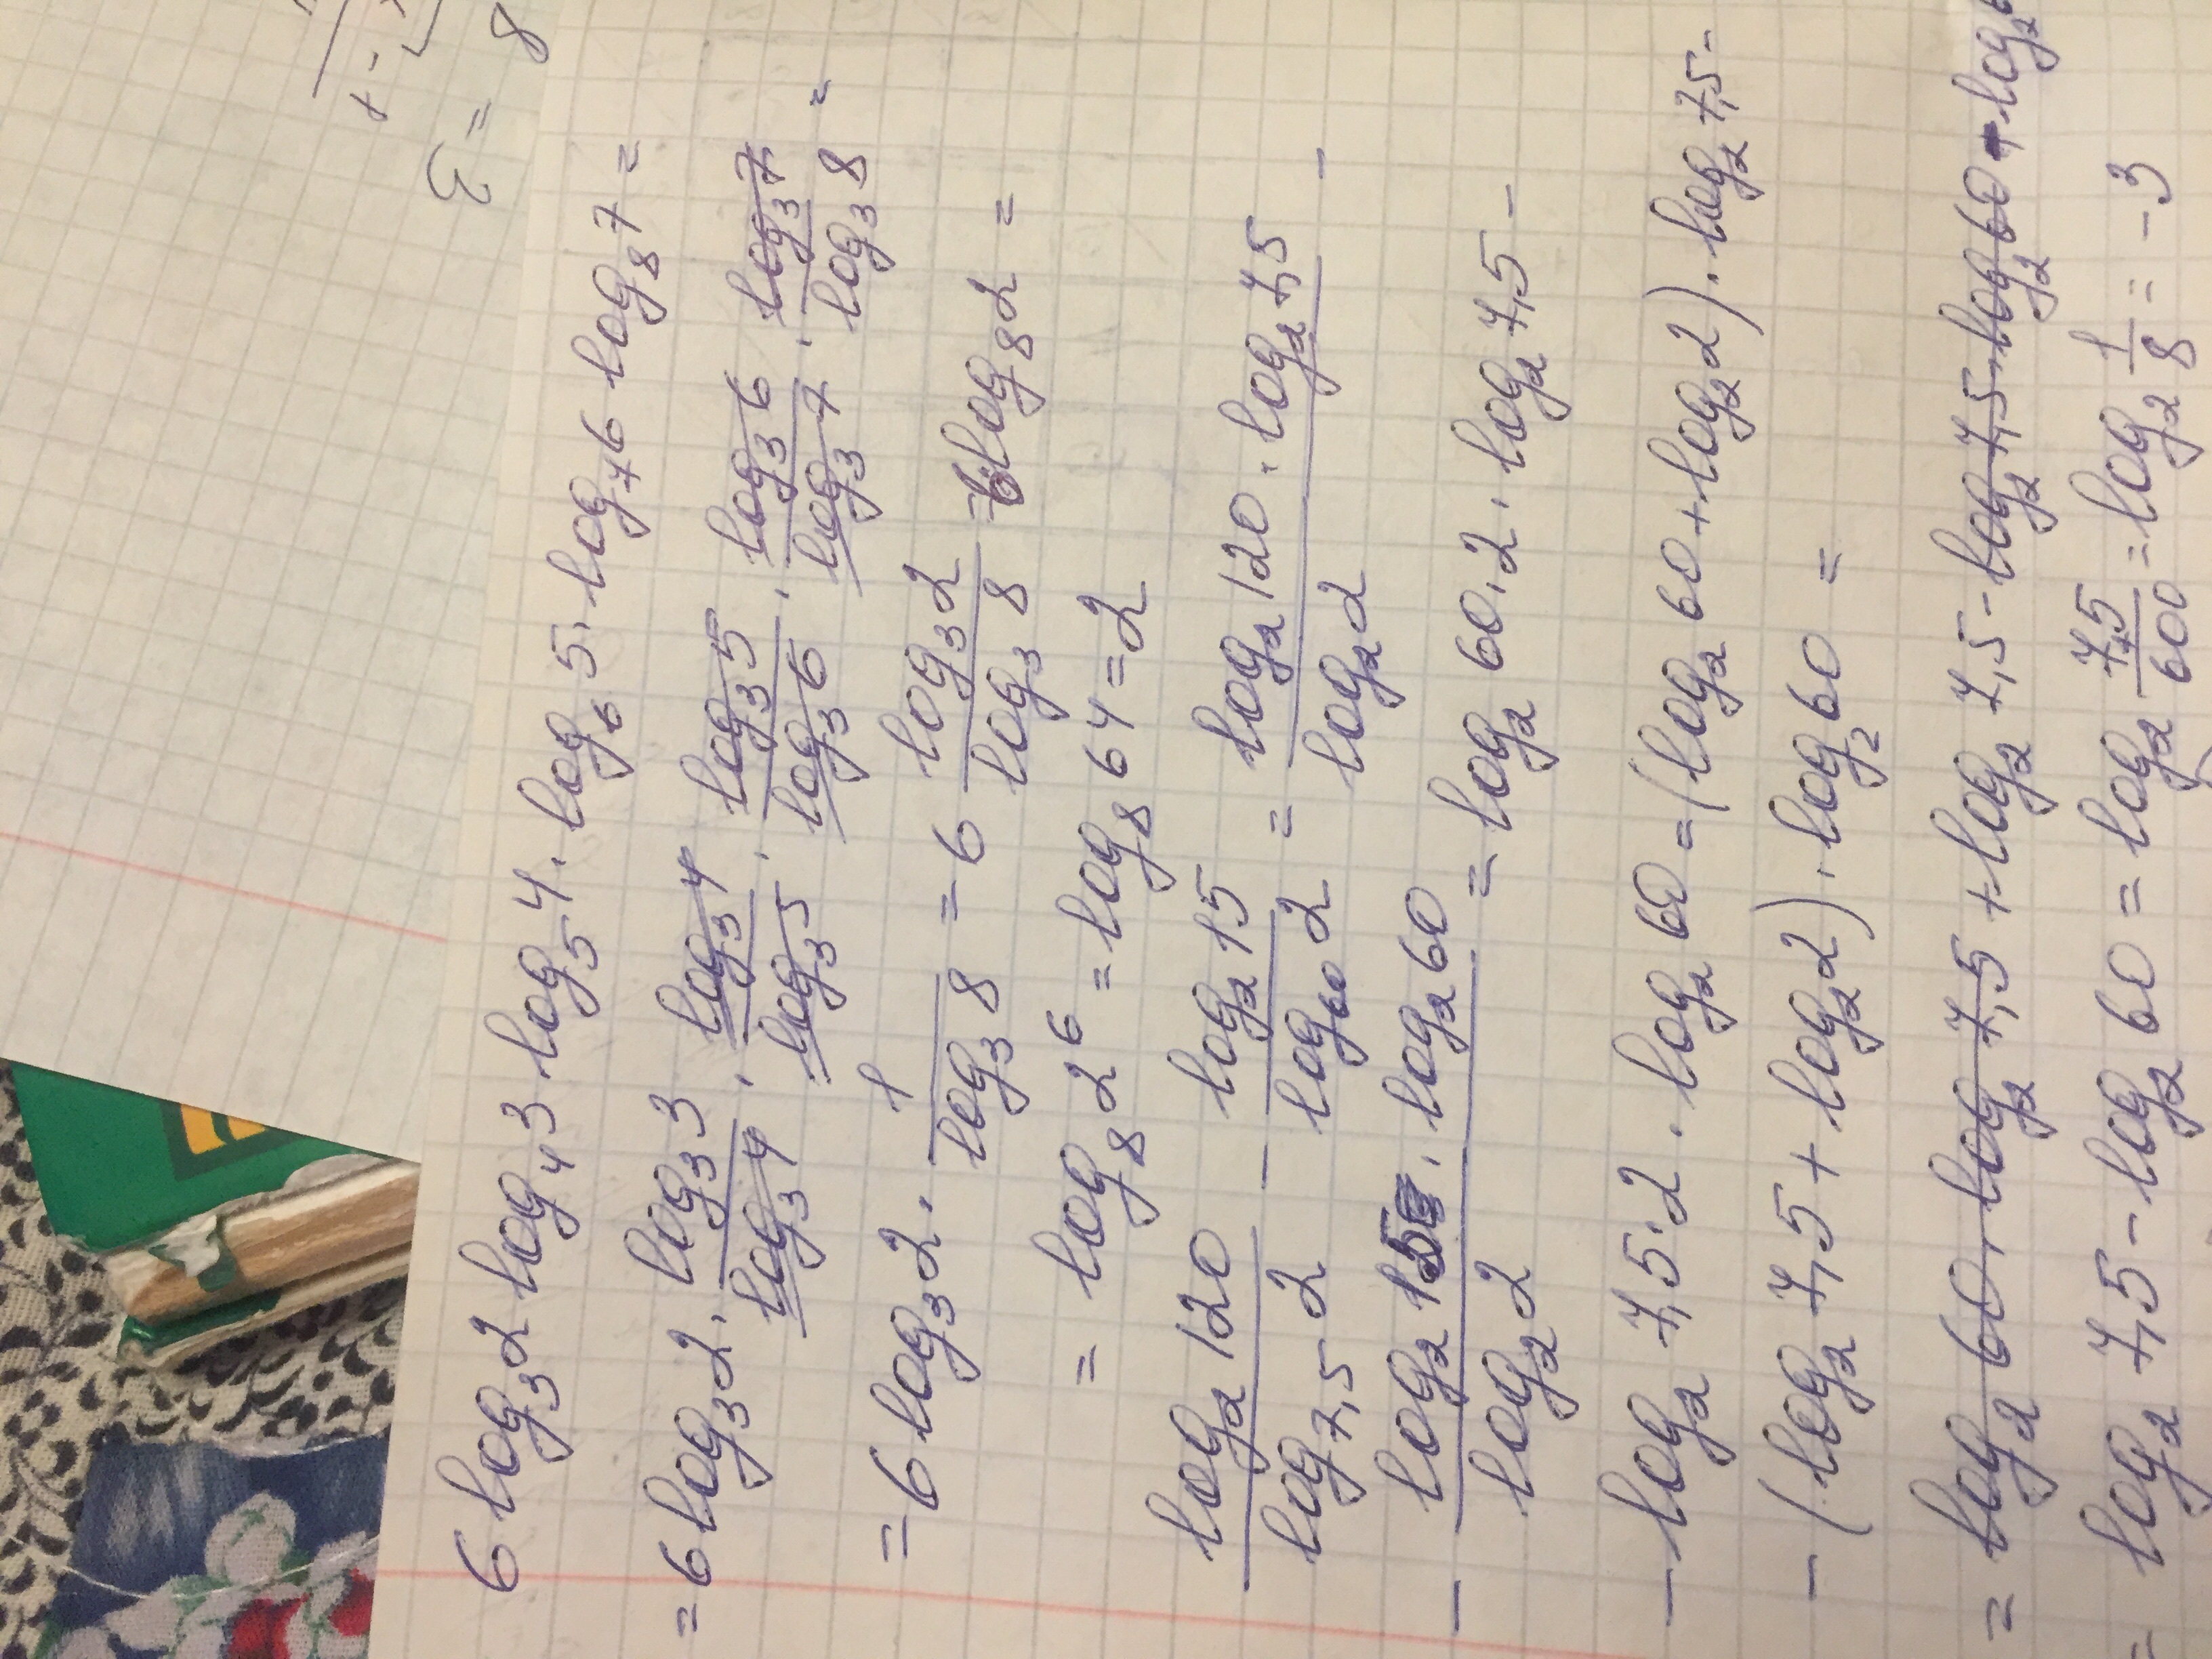 6 log₃2 log₄3·log₅4·log₆5·log₇6 log₈7 =
= 6 log₃2 · log₃3/log₃4 · log₃4/log₃5 · log₃5/log₃6 · log₃6/log₃7 · log₃7/log₃8 =
= 6 log₃2 · 1/log₃8 = 6 log₃2/log₃8 = 6log₈2 =
= log₈2⁶ = log₈64 = 2
log₂120/log₇,₅2 − log₂15/log₆₀2 = log₂120 · log₂7,5/log₂2 −
− log₂15 · log₂60/log₂2 = log₂60·2·log₂7,5 −
− log₂7,5·2 · log₂60 = (log₂60 + log₂2)·log₂7,5 −
− (log₂7,5 + log₂2)·log₂60 =
= log₂60·log₂7,5 + log₂7,5 − log₂7,5·log₂60 − log₂
= log₂7,5 − log₂60 = log₂ 7,5/600 = log₂ 1/8 = −3
ε = 8